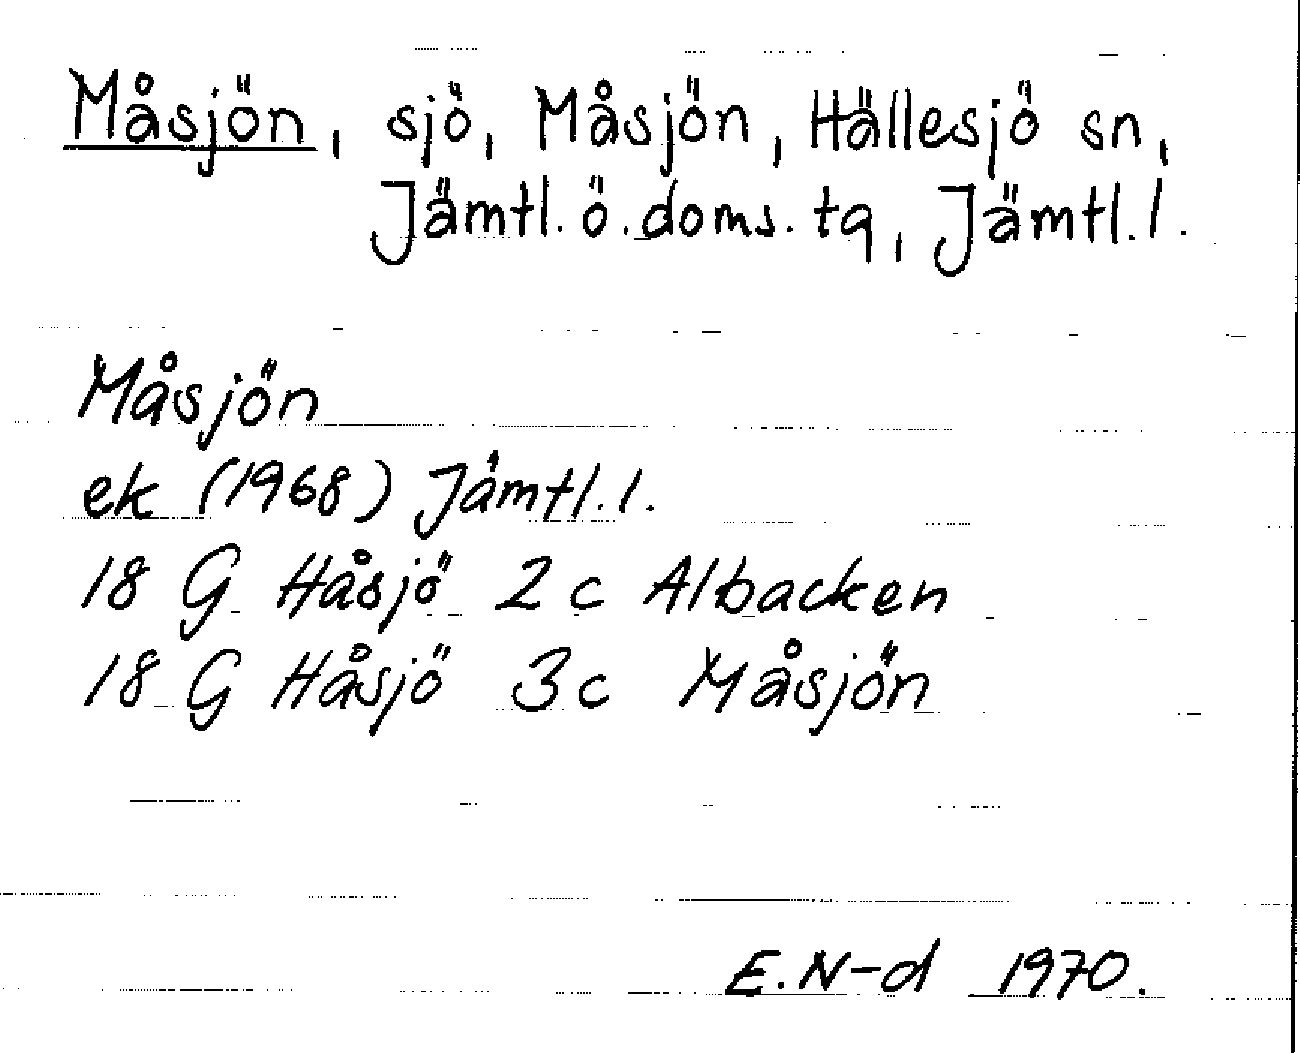 Måsjön, sjö, Måsjön, Hällesjö sn,
Jämtl. ö. doms. tg, Jämtl. l.
Måsjön
ek (1968) Jämtl. l.
18 G Håsjö 2 c Albacken
18 G Håsjö 3 c Måsjön
E. N-d 1970.